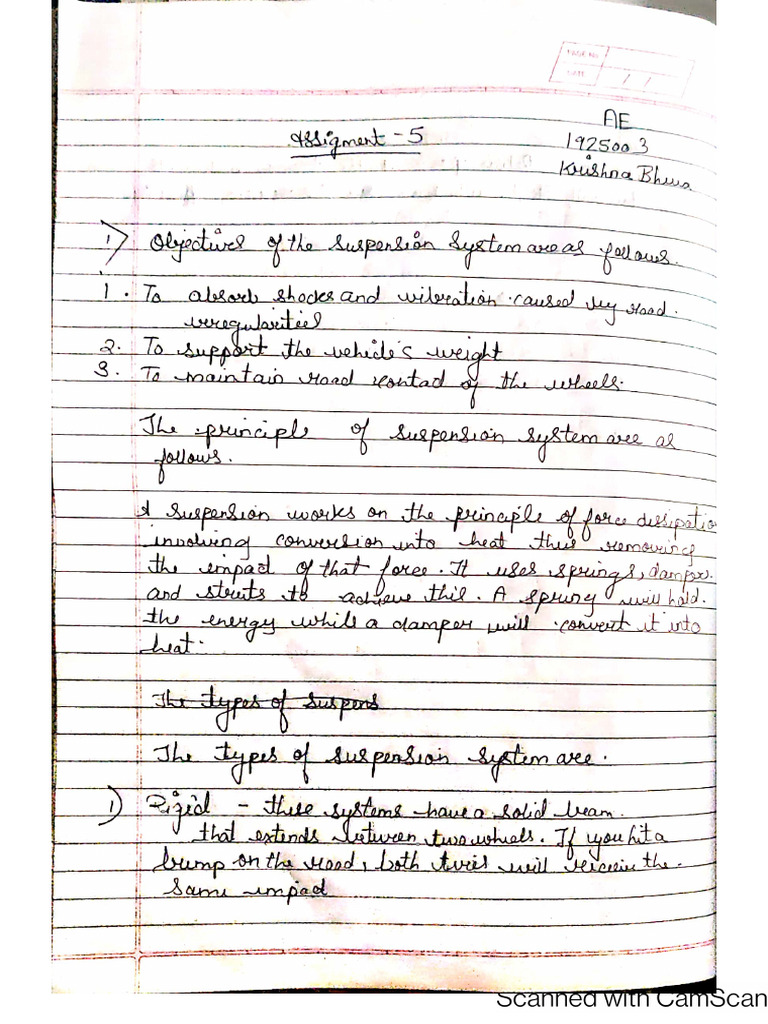 PAGE No.
DATE / /
AE
Assigment - 5
1925003
Krishna Bhuva
1) Objectives of the suspension system are as follows.
1. To absorb shocks and vibration caused by road.
irregularities
2. To support the vehicle's weight
3. To maintain road contad of the wheels.
The principle of suspension system are as
follows.
A suspension works on the principle of force dissipatio
involving conversion into heat thus removing
the impad of that force. It uses springs, dampers.
and struts to achieve this. A spring will hold.
the energy while a damper will convert it into
heat.
The types of suspens
The types of suspension system are.
1) Rigid - these systems have a solid beam.
that extends between two wheels. If you hit a
bump on the road, both tires will receive the.
same impad
Scanned with CamScan